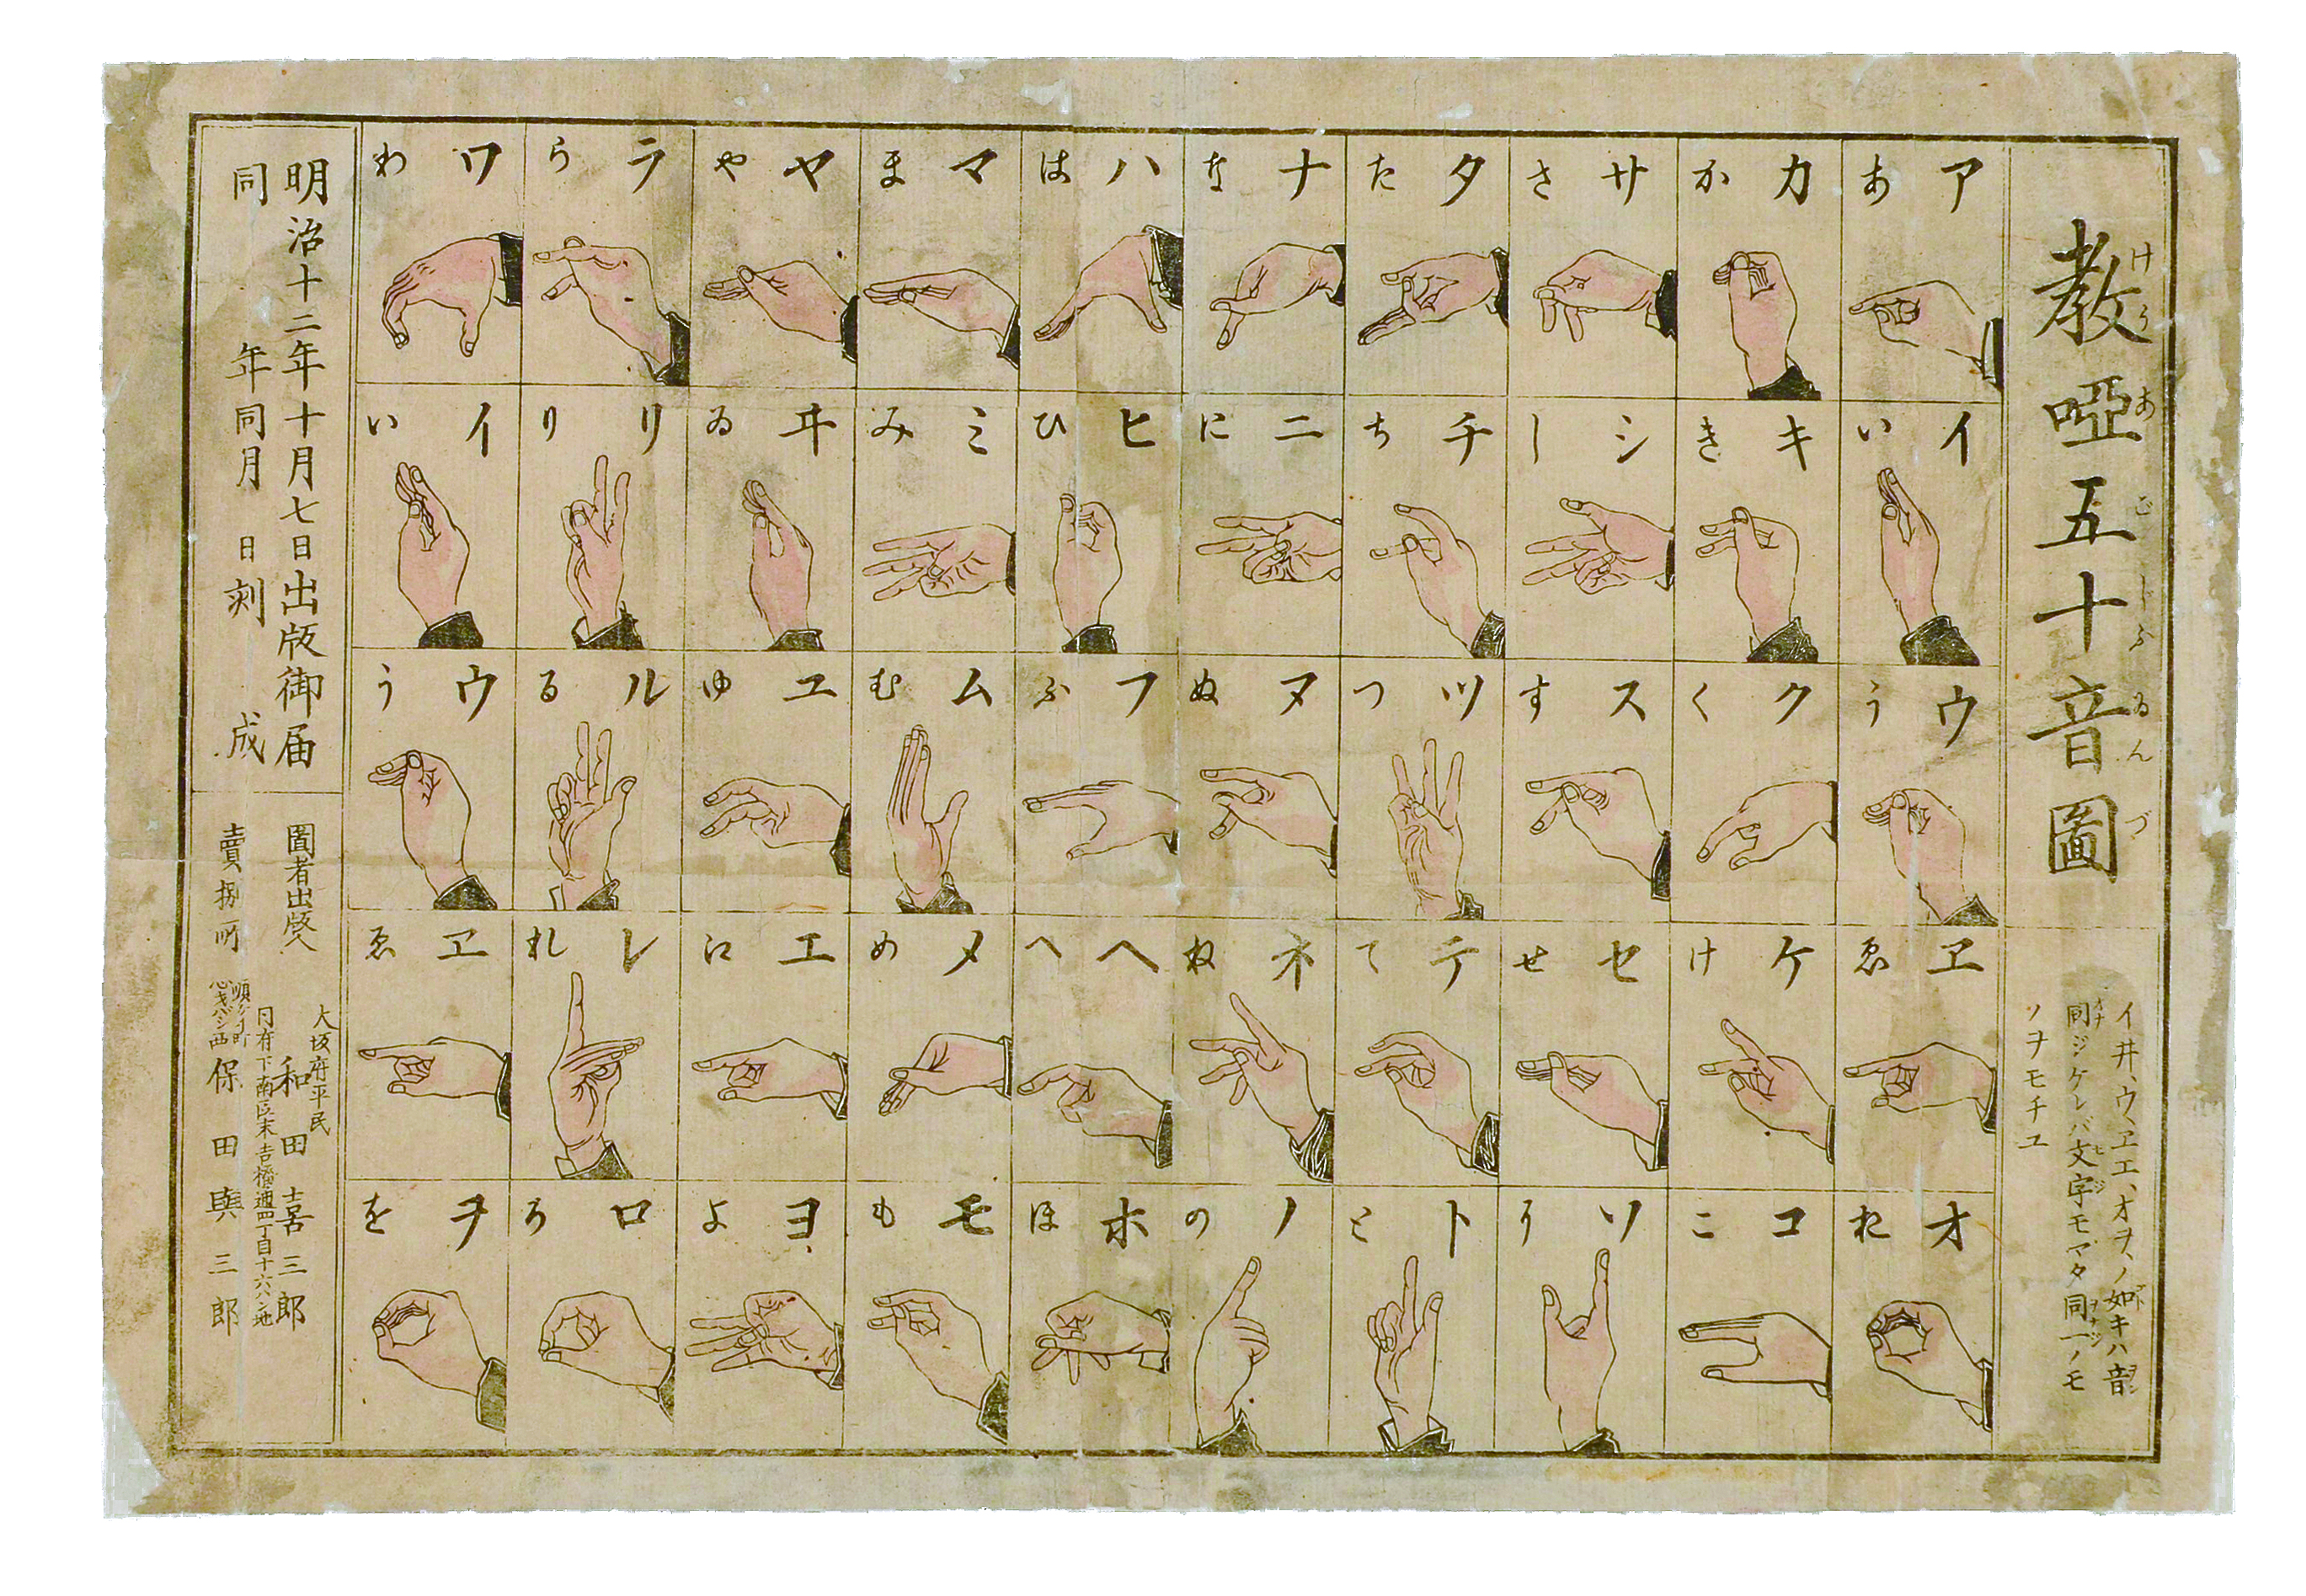 教啞五十音圖
けうあごじふゐんづ
イ井、ウ、ヱエ、オヲ、ノ如キハ音
同ジケレバ文字モマタ同一ノモ
ノヲモチユ
ア あ
イ い
ウ う
ヱ ゑ
オ お
カ か
キ き
ク く
ケ け
コ こ
サ さ
シ し
ス す
セ せ
ソ そ
タ た
チ ち
ツ つ
テ て
ト と
ナ な
ニ に
ヌ ぬ
ネ ね
ノ の
ハ は
ヒ ひ
フ ふ
ヘ へ
ホ ほ
マ ま
ミ み
ム む
メ め
モ も
ヤ や
井 ゐ
ユ ゆ
エ え
ヨ よ
ラ ら
リ り
ル る
レ れ
ロ ろ
ワ わ
イ い
ウ う
ヱ ゑ
ヲ を
明治十二年十月七日出版御届
同 年同月 日刻 成
圖者出版人
大坂府平民
和田喜三郎
同府下南区末吉橋通四丁目十六バン地
賣捌所
順ケイ町
心斎バシ西
保田與三郎